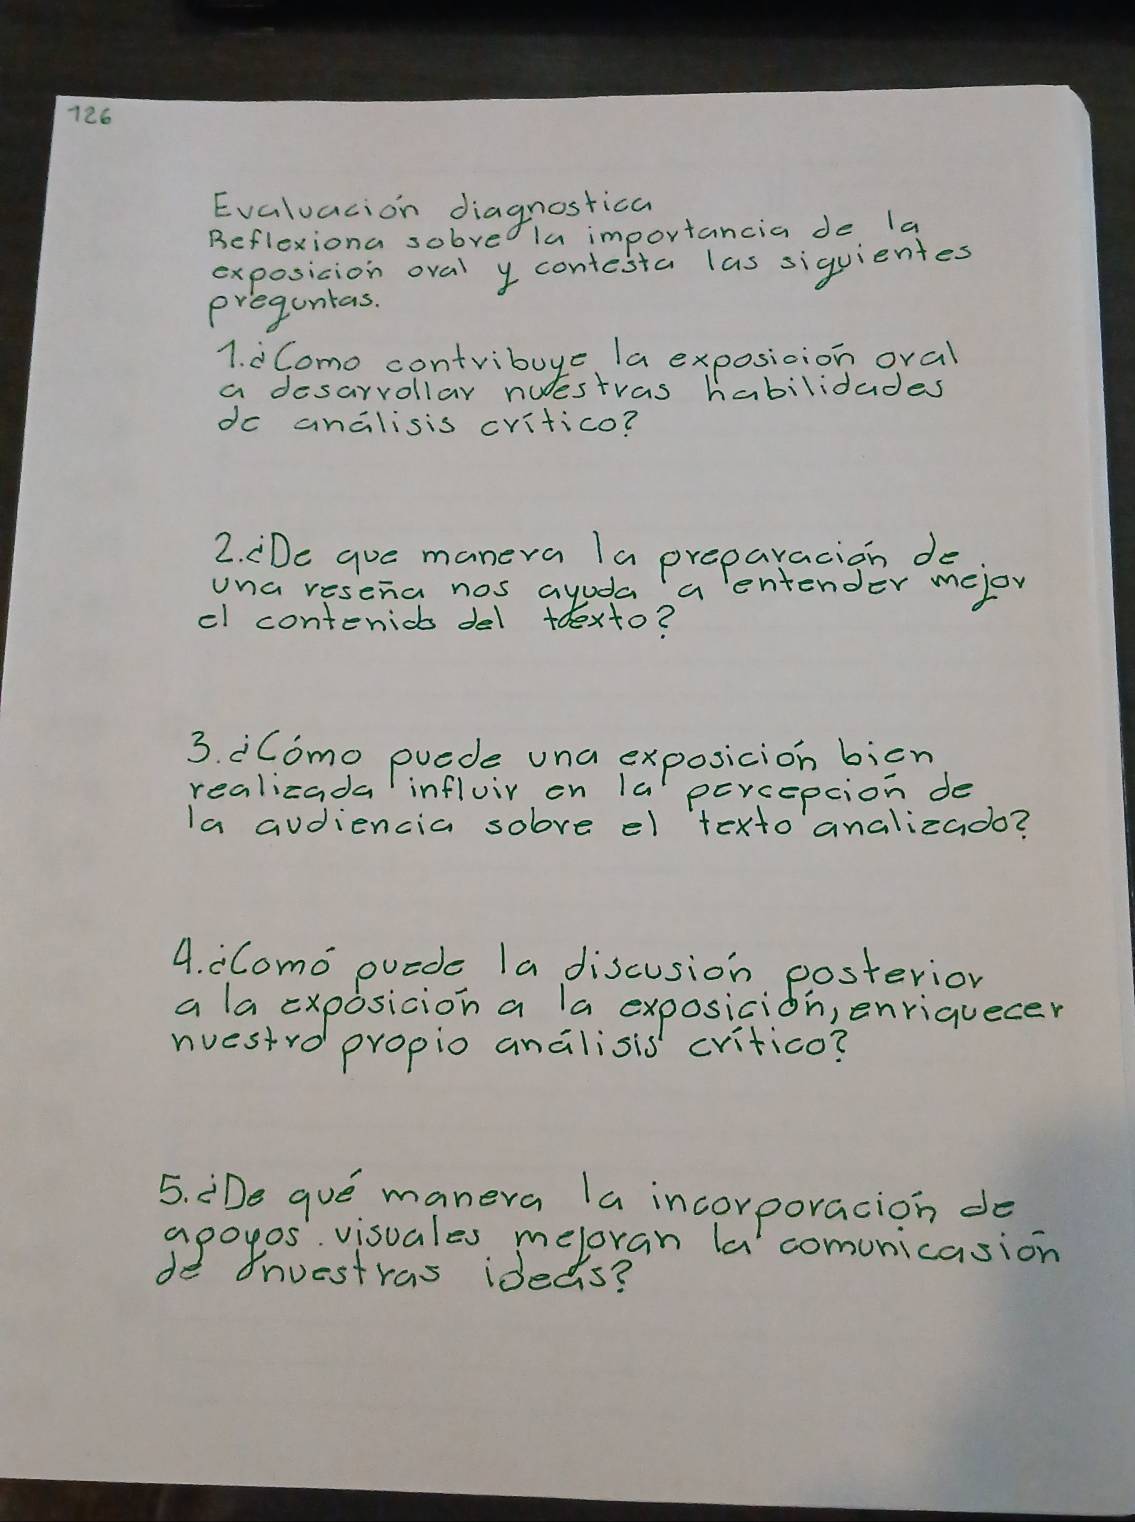 126
Evaluación diagnostica
Reflexiona sobre la importancia de la
exposición oral y contesta las siguientes
preguntas.
1.¿Como contribuye la exposición oral
a desarrollar nuestras habilidades
de análisis crítico?
2.¿De que manera la preparación de
una reseña nos ayuda a entender mejor
el contenido del texto?
3.¿Cómo puede una exposición bien
realizada influir en la percepción de
la audiencia sobre el texto analizado?
4.¿Comó puede la discusión posterior
a la exposición a la exposición, enriquecer
nuestro propio análisis crítico?
5.¿De qué manera la incorporación de
apoyos visuales mejoran la comunicasión
de nuestras ideas?